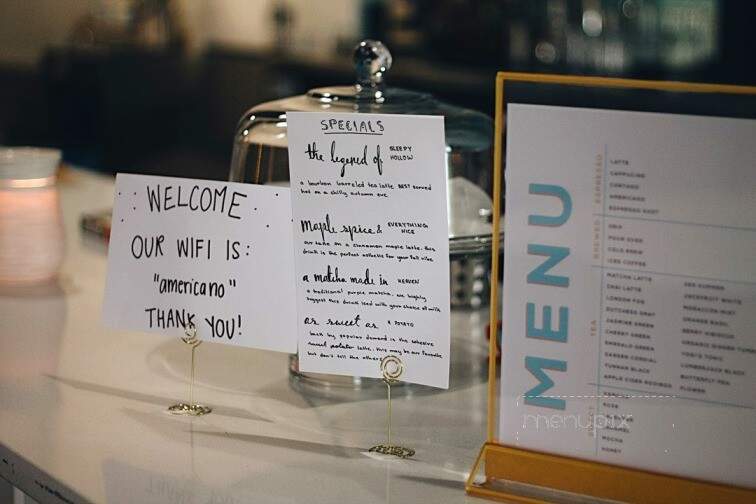 WELCOME
OUR WIFI IS:
"americano"
THANK YOU!
SPECIALS
the legend of SLEEPY
HOLLOW
a bourbon barreled tea latte BEST served
hot on a chilly autumn eve.
Maple spice & EVERYTHING
NICE
our take on a cinnamon maple latte. this
drink is the perfect
a matcha made in HEAVEN
a traditional purple matcha. we highly
suggest this drink iced with your choice of milk
as sweet as A POTATO
back by popular demand is the
sweet potato latte. this may be our favorite
but don't tell the others
MENU
ESPRESSO
LATTE
CAPPUCINO
CORTADO
AMERICANO
BREWED
DRIP
POUR OVER
COLD BREW
ICED COFFEE
TEA
MATCHA LATTE
CHAI LATTE
LONDON FOG
DUTCHESS GRAY
JASMINE GREEN
CHERRY GREEN
EMERALD GREEN
GARDEN CORDIAL
YUNNAN BLACK
APPLE CIDER ROOIBOS
BERRY HIBISCUS
LUMBERJACK BLACK
BUTTERFLY PEA
FLOWER
MOCHA
HONEY
menupix